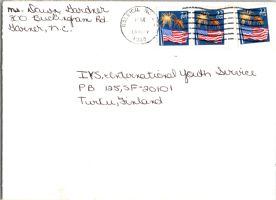 Ms. Dawn Gardner
800 Buckingham Rd.
Garner, N.C.
IYS, International Youth Service
PB 125, SF-20101
Turku, Finland